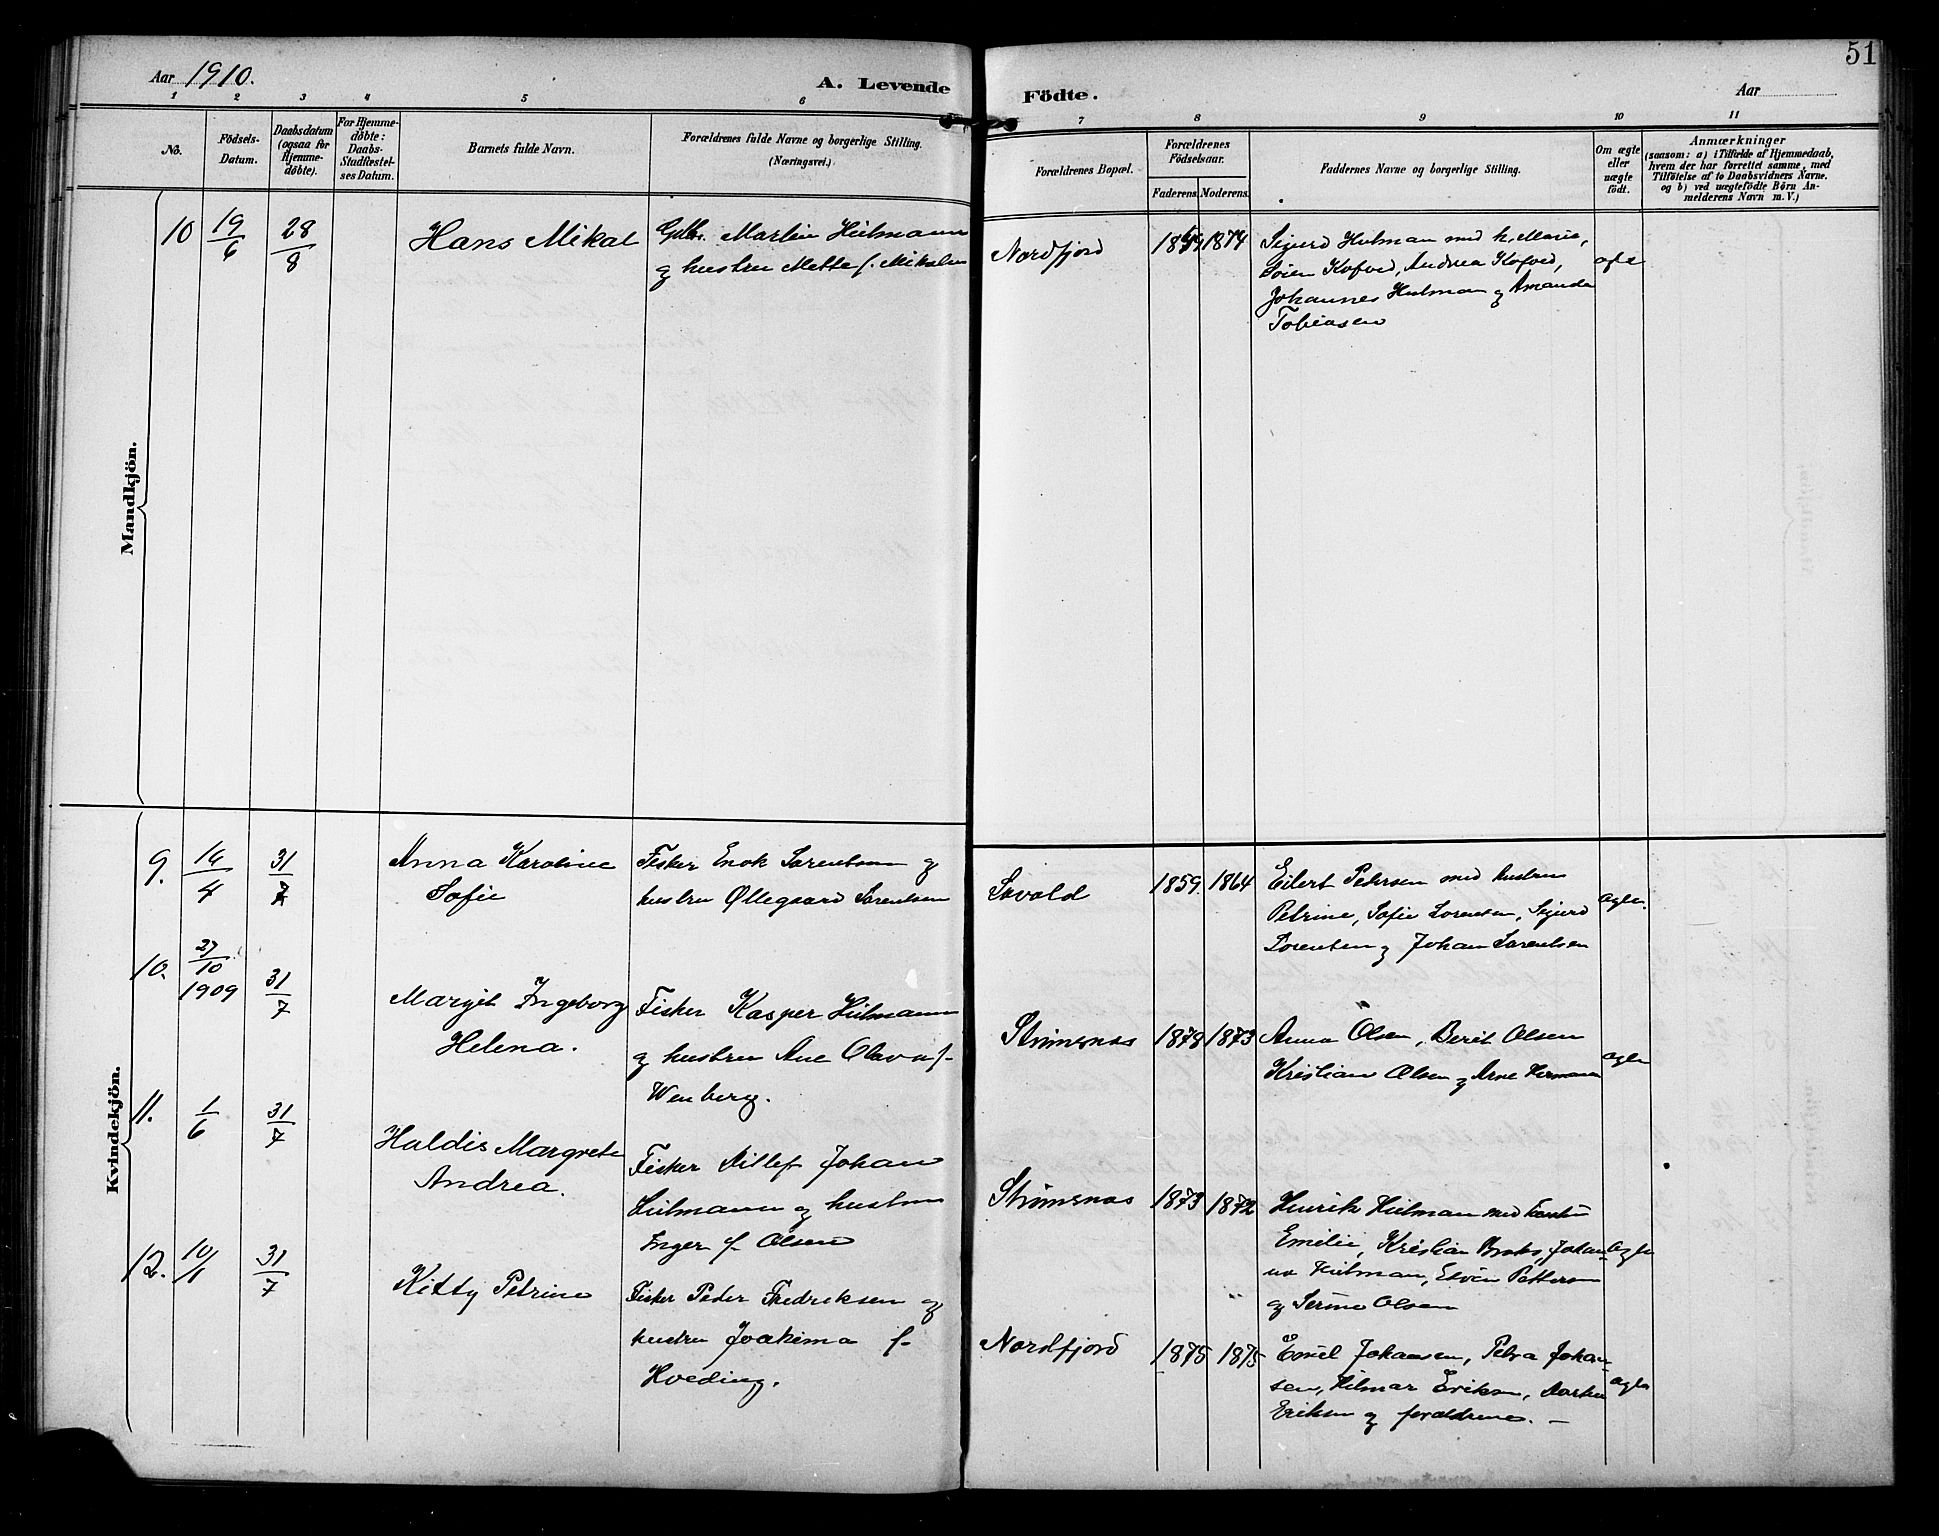 51
Aar 1910.
A. Levende
Födte.
Aar
1 2 3 4 5 6 7 8 9 10 11
No.
Födsels-
Datum.
Daabsdatum
(ogsaa for
Hjemme-
døbte).
For Hjemme-
døbte:
Daabs-
Stadfæstel-
ses Datum.
Barnets fulde Navn.
Forældrenes fulde Navne og borgerlige Stilling.
(Næringsvei.)
Forældrenes Bopæl.
Forældrenes
Födselsaar.
Faderens. Moderens.
Faddernes Navne og borgerlige Stilling.
Om ægte
eller
uægte
født.
Anmærkninger
(saasom: a) i Tilfælde af Hjemmedaab,
hvem der har forrettet samme, med
Tilföielse af to Daabsvidners Navne.
og b) ved uægtefödte Börn An-
melderens Navn m. V.)
Mandkjön.
10 19/6 28/8 Hans Mikal
Gdbr. Martin Hilmann
og hustru Mette f. Mikalsen
Nordfjord
1874
Sigurd Hilman med h. Marie,
Søren Kofoed, Andrea Kofoed,
Johannes Hilman og Amanda
Tobiasen
ægte
Kvindekjön.
9. 14/4 31/7 Anna Karoline
Sofie
Fisker Enok Lorentsen og
hustru Øllegaard Lorentsen
1859. 1864
Eilert Pedersen med hustru
Petrine, Sofie Lorentsen, Sigurd
Lorentsen og Johan Lorentsen
ægte.
10. 27/10
1909
31/7 Margit Ingeborg
Helena.
Fisker Kasper Hilmann
og hustru Ane Olava f.
Wenberg.
Strømsnæs 1878 1873
Anna Olsen, Berit Olsen
Kristian Olsen og Arne
ægte
11. 1/6 31/7 Haldis Margrete
Andrea.
Fisker Dillef Johan
Hilmann og hustru
Inger f. Olsen
Strømsnæs 1873 1872
Henrik Hilman med hustru
Emilie, Kristian Johan
na Hilman, Edvin Pettersen
og Serine Olsen
ægte
12. 10/1 31/7 Kitty Petrine
Fisker Peder Fredriksen og
hustru Joakima f.
Hveding.
Nordfjord 1875 1875
Emil Johansen, Petra Johan-
sen, Hilmar Eriksen,
Eriksen og forældrene. —
ægte